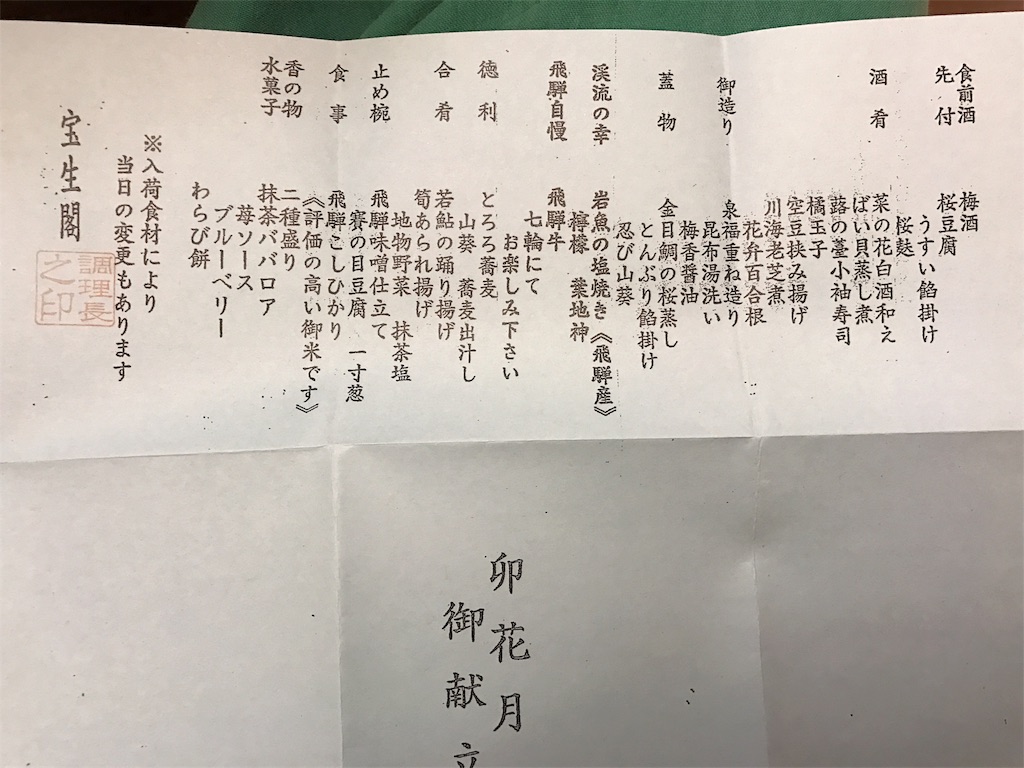 食前酒　梅酒
先付　桜豆腐
うすい餡掛け
桜麩
酒肴　菜の花白酒和え
ばい貝蒸し煮
蕗の薹小袖寿司
橘玉子
空豆挟み揚げ
川海老芝煮
花弁百合根
御造り　泉福重ね造り
昆布湯洗い
梅香醤油
蓋物　金目鯛の桜蒸し
とんぶり餡掛け
忍び山葵
渓流の幸　岩魚の塩焼き《飛騨産》
檸檬　葉地神
飛騨自慢　飛騨牛
七輪にて
お楽しみ下さい
徳利　とろろ蕎麦
山葵　蕎麦出汁し
合肴　若鮎の踊り揚げ
筍あられ揚げ
地物野菜　抹茶塩
止め椀　飛騨味噌仕立て
賽の目豆腐　一寸葱
食事　飛騨こしひかり
《評価の高い御米です》
香の物　二種盛り
水菓子　抹茶ババロア
苺ソース
ブルーベリー
わらび餅
※入荷食材により
当日の変更もあります
宝生閣
調理長
之印
卯花月
御献立